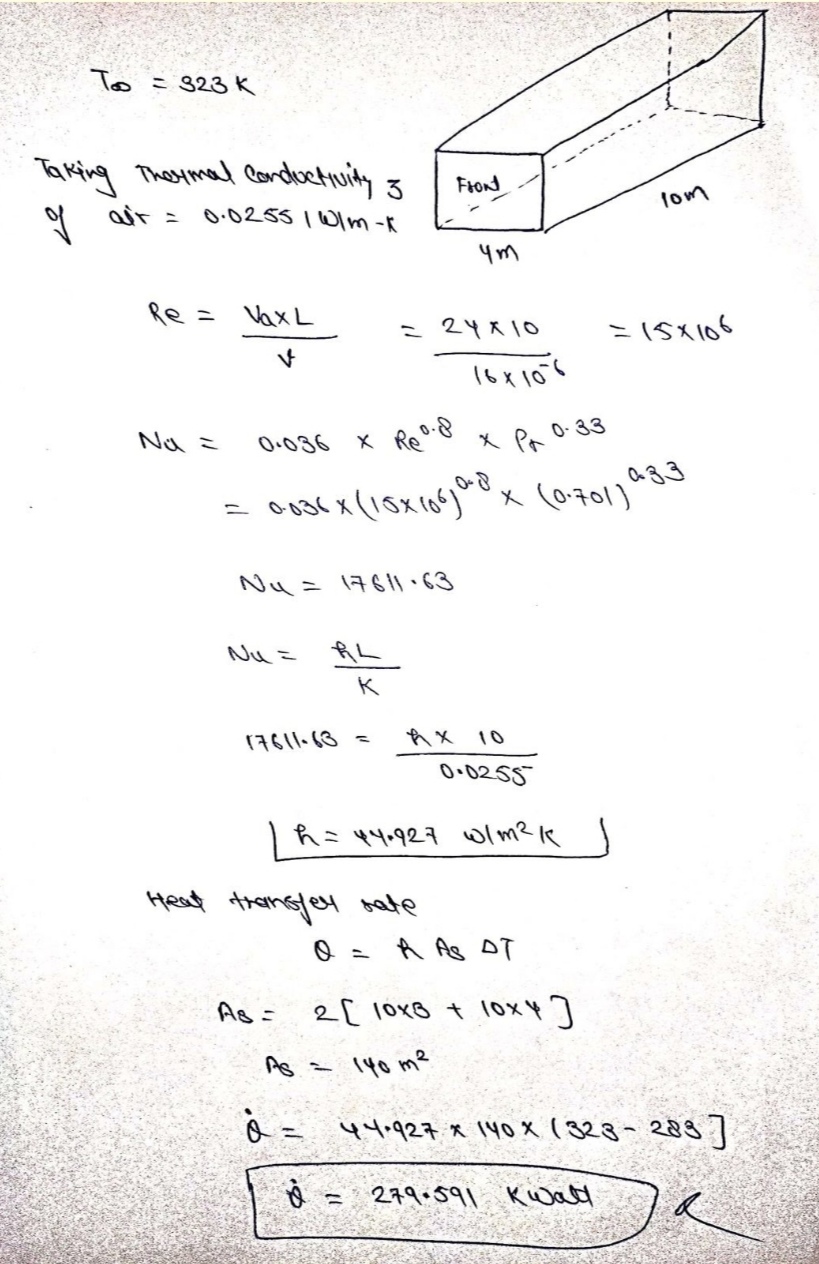 T∞ = 323 K
Taking Thermal Conductivity
of air = 0.02551 W/m-K
Front
3
4m
10m
Re = Va×L / ν = 24×10 / 16×10⁻⁶ = 15×10⁶
Nu = 0.036 × Re^0.8 × Pr^0.33
= 0.036×(15×10⁶)^0.8 × (0.701)^0.33
Nu = 17611.63
Nu = hL / K
17611.63 = h× 10 / 0.0255
h = 44.927 W/m²K
Heat transfer rate
Q = h As ΔT
As = 2[10×3 + 10×4]
As = 140 m²
Q̇ = 44.927 × 140 × (323 - 283]
Q̇ = 279.591 Kwatt